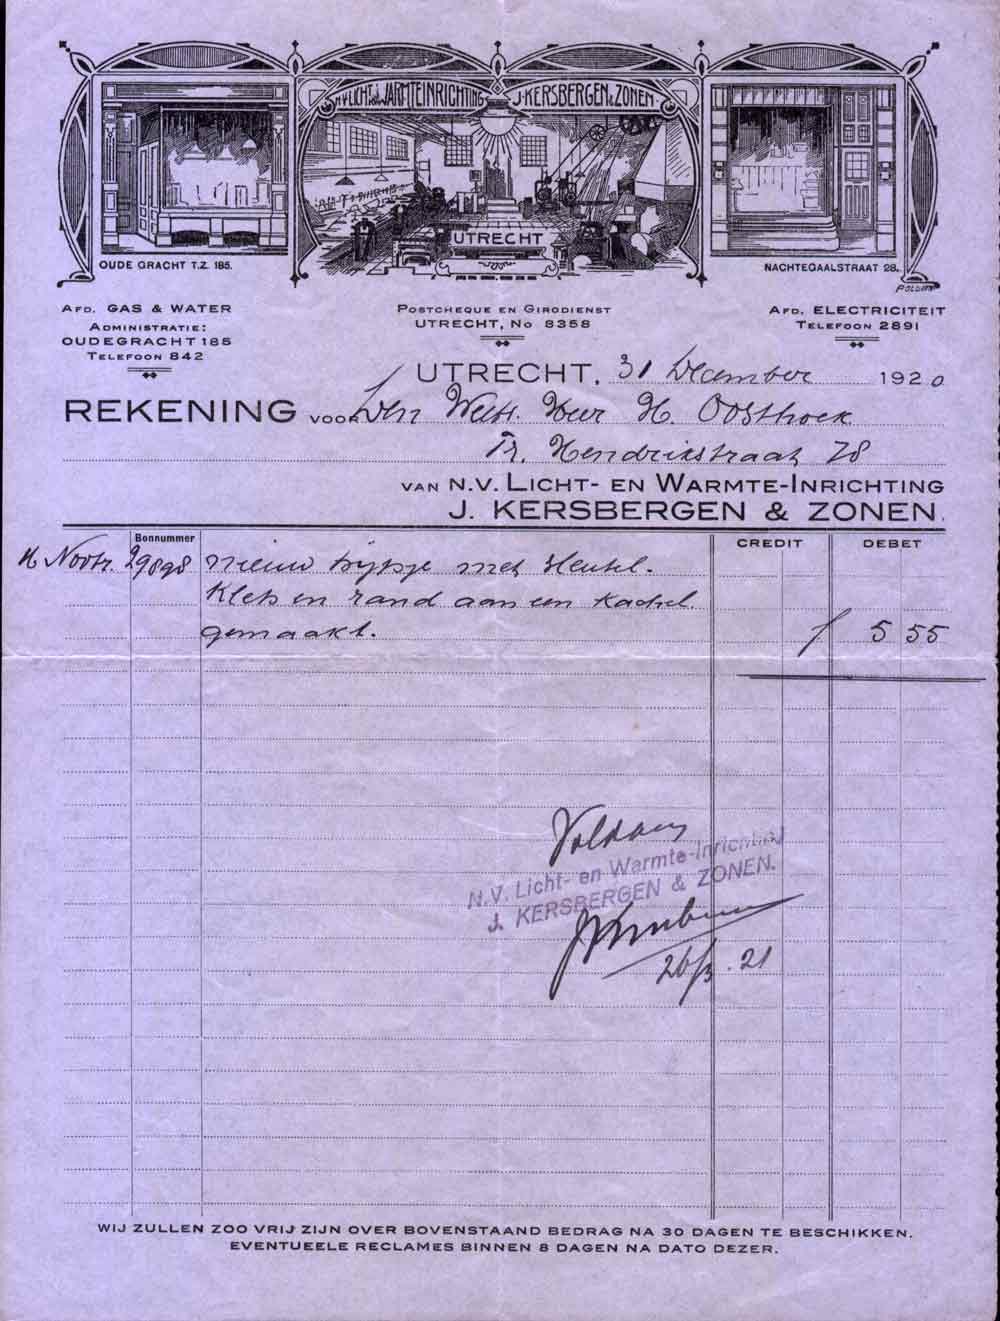 N.V. LICHT en WARMTEINRICHTING J. KERSBERGEN & ZONEN
UTRECHT
OUDE GRACHT T.Z. 185.
NACHTEGAALSTRAAT 28.
AFD. GAS & WATER
ADMINISTRATIE:
OUDEGRACHT 185
TELEFOON 842
POSTCHEQUE EN GIRODIENST
UTRECHT, NO 8358
AFD. ELECTRICITEIT
TELEFOON 2891
UTRECHT, 31 December 1920
REKENING VOOR Den Heer H. Oosthoek
Fr. Hendrikstraat 78
VAN N.V. LICHT- EN WARMTE-INRICHTING
J. KERSBERGEN & ZONEN.
Bonnummer
CREDIT DEBET
Novbr. 29898 nieuw met sleutel.
Klep en rand aan een kachel
gemaakt. f 5 55
Voldaan
N.V. Licht- en Warmte-Inrichting
J. KERSBERGEN & ZONEN.
26/3 . 21
WIJ ZULLEN ZOO VRIJ ZIJN OVER BOVENSTAAND BEDRAG NA 30 DAGEN TE BESCHIKKEN.
EVENTUEELE RECLAMES BINNEN 8 DAGEN NA DATO DEZER.